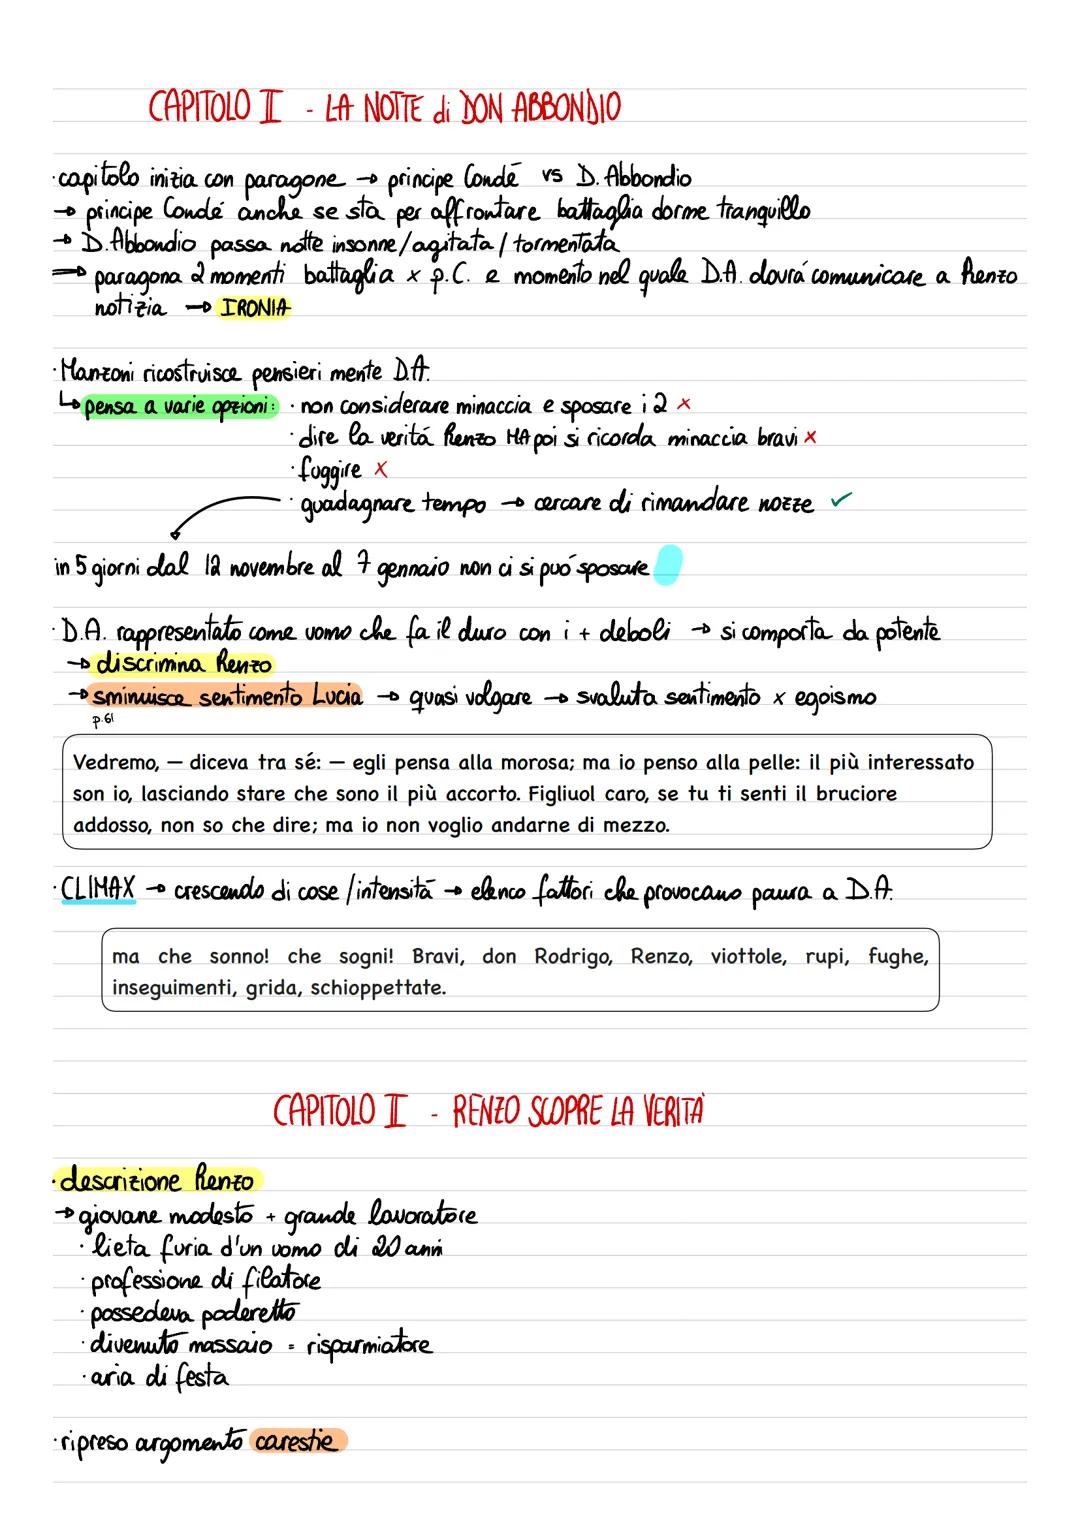 CAPITOLO II - LA NOTTE di DON ABBONDIO
·capitolo inizia con paragone → principe Condé vs D. Abbondio
→ principe Condé anche se sta per affrontare battaglia dorme tranquillo
→ D. Abbondio passa notte insonne/agitata/tormentata
⇒ paragona 2 momenti battaglia x p.C. e momento nel quale D.A. dovrá comunicare a Renzo
notizia → IRONIA
·Manzoni ricostruisce pensieri mente D.A.
↳ pensa a varie opzioni: · non considerare minaccia e sposare i 2 x
· dire la veritá Renzo MA poi si ricorda minaccia bravi x
· fuggire x
· guadagnare tempo → cercare di rimandare nozze ✓
in 5 giorni dal 12 novembre al 7 gennaio non ci si puó sposare
· D.A. rappresentato come uomo che fa il duro con i + deboli → si comporta da potente
→ discrimina Renzo
→ sminuisce sentimento Lucia → quasi volgare → svaluta sentimento x egoismo
p.61
Vedremo, — diceva tra sé: — egli pensa alla morosa; ma io penso alla pelle: il più interessato
son io, lasciando stare che sono il più accorto. Figliuol caro, se tu ti senti il bruciore
addosso, non so che dire; ma io non voglio andarne di mezzo.
·CLIMAX → crescendo di cose/intensitá → elenco fattori che provocano paura a D.A.
ma che sonno! che sogni! Bravi, don Rodrigo, Renzo, viottole, rupi, fughe,
inseguimenti, grida, schioppettate.
CAPITOLO II - RENZO SCOPRE LA VERITÀ
·descrizione Renzo
→ giovane modesto + grande lavoratore
· lieta furia d'un uomo di 20 anni
· professione di filatore
· possedeva poderetto
· divenuto massaio = risparmiatore
· aria di festa
·ripreso argomento carestie